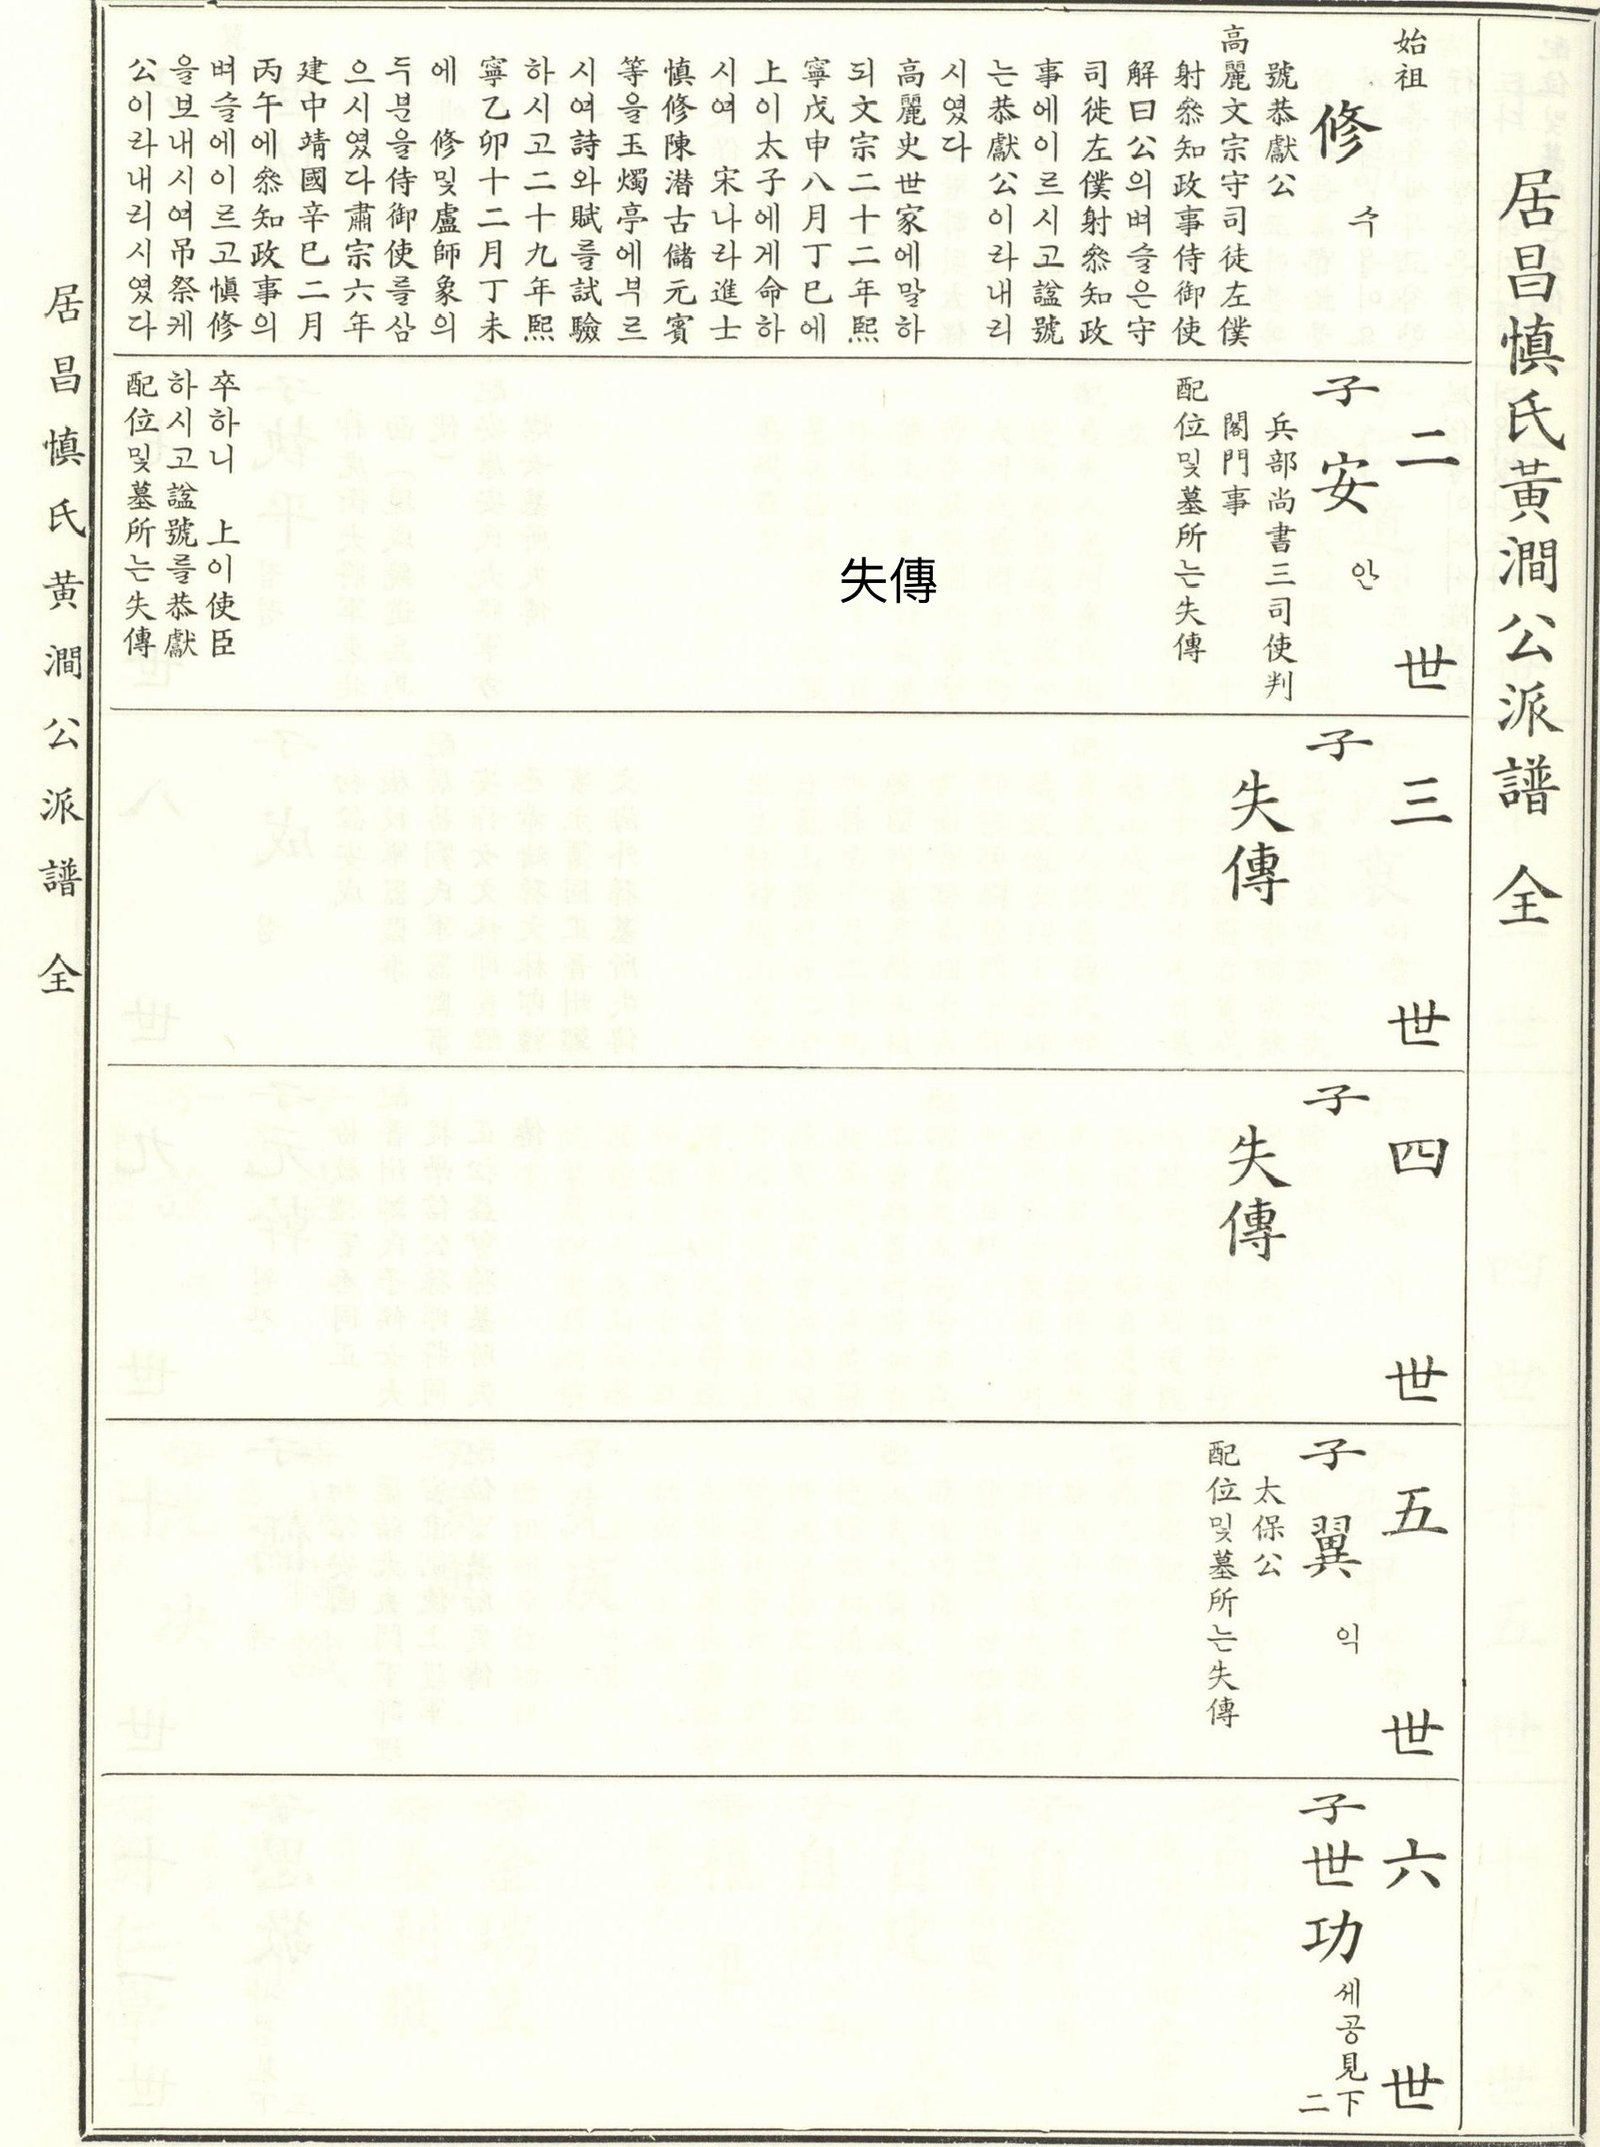 居昌愼氏黃澗公派譜 全
始祖
修 수
號恭獻公
高麗文宗守司徒左僕
射叅知政事侍御使
解曰公의벼슬은守
司徒左僕射叅知政
事에이르시고諡號
는恭獻公이라내리
시였다
高麗史世家에말하
되文宗二十二年熙
寧戊申八月丁巳에
上이太子에게命하
시여 宋나라進士
愼修陳潜古儲元賓
等을玉燭亭에부르
시여詩와賦를試驗
하시고二十九年熙
寧乙卯十二月丁未
에 修및盧師象의
두분을侍御使를삼
으시였다肅宗六年
建中靖國辛巳二月
丙午에叅知政事의
벼슬에이르고愼修
을보내시여吊祭케
公이라내리시였다
二世
子安 안
兵部尚書三司使判
閣門事
配位및墓所는失傳
失傳
卒하니 上이使臣
하시고諡號를恭獻
配位및墓所는失傳
三世
子
失傳
四世
子
失傳
五世
子翼 익
太保公
配位및墓所는失傳
六世
子世功 세공見下
二
居昌愼氏黃澗公派譜 全